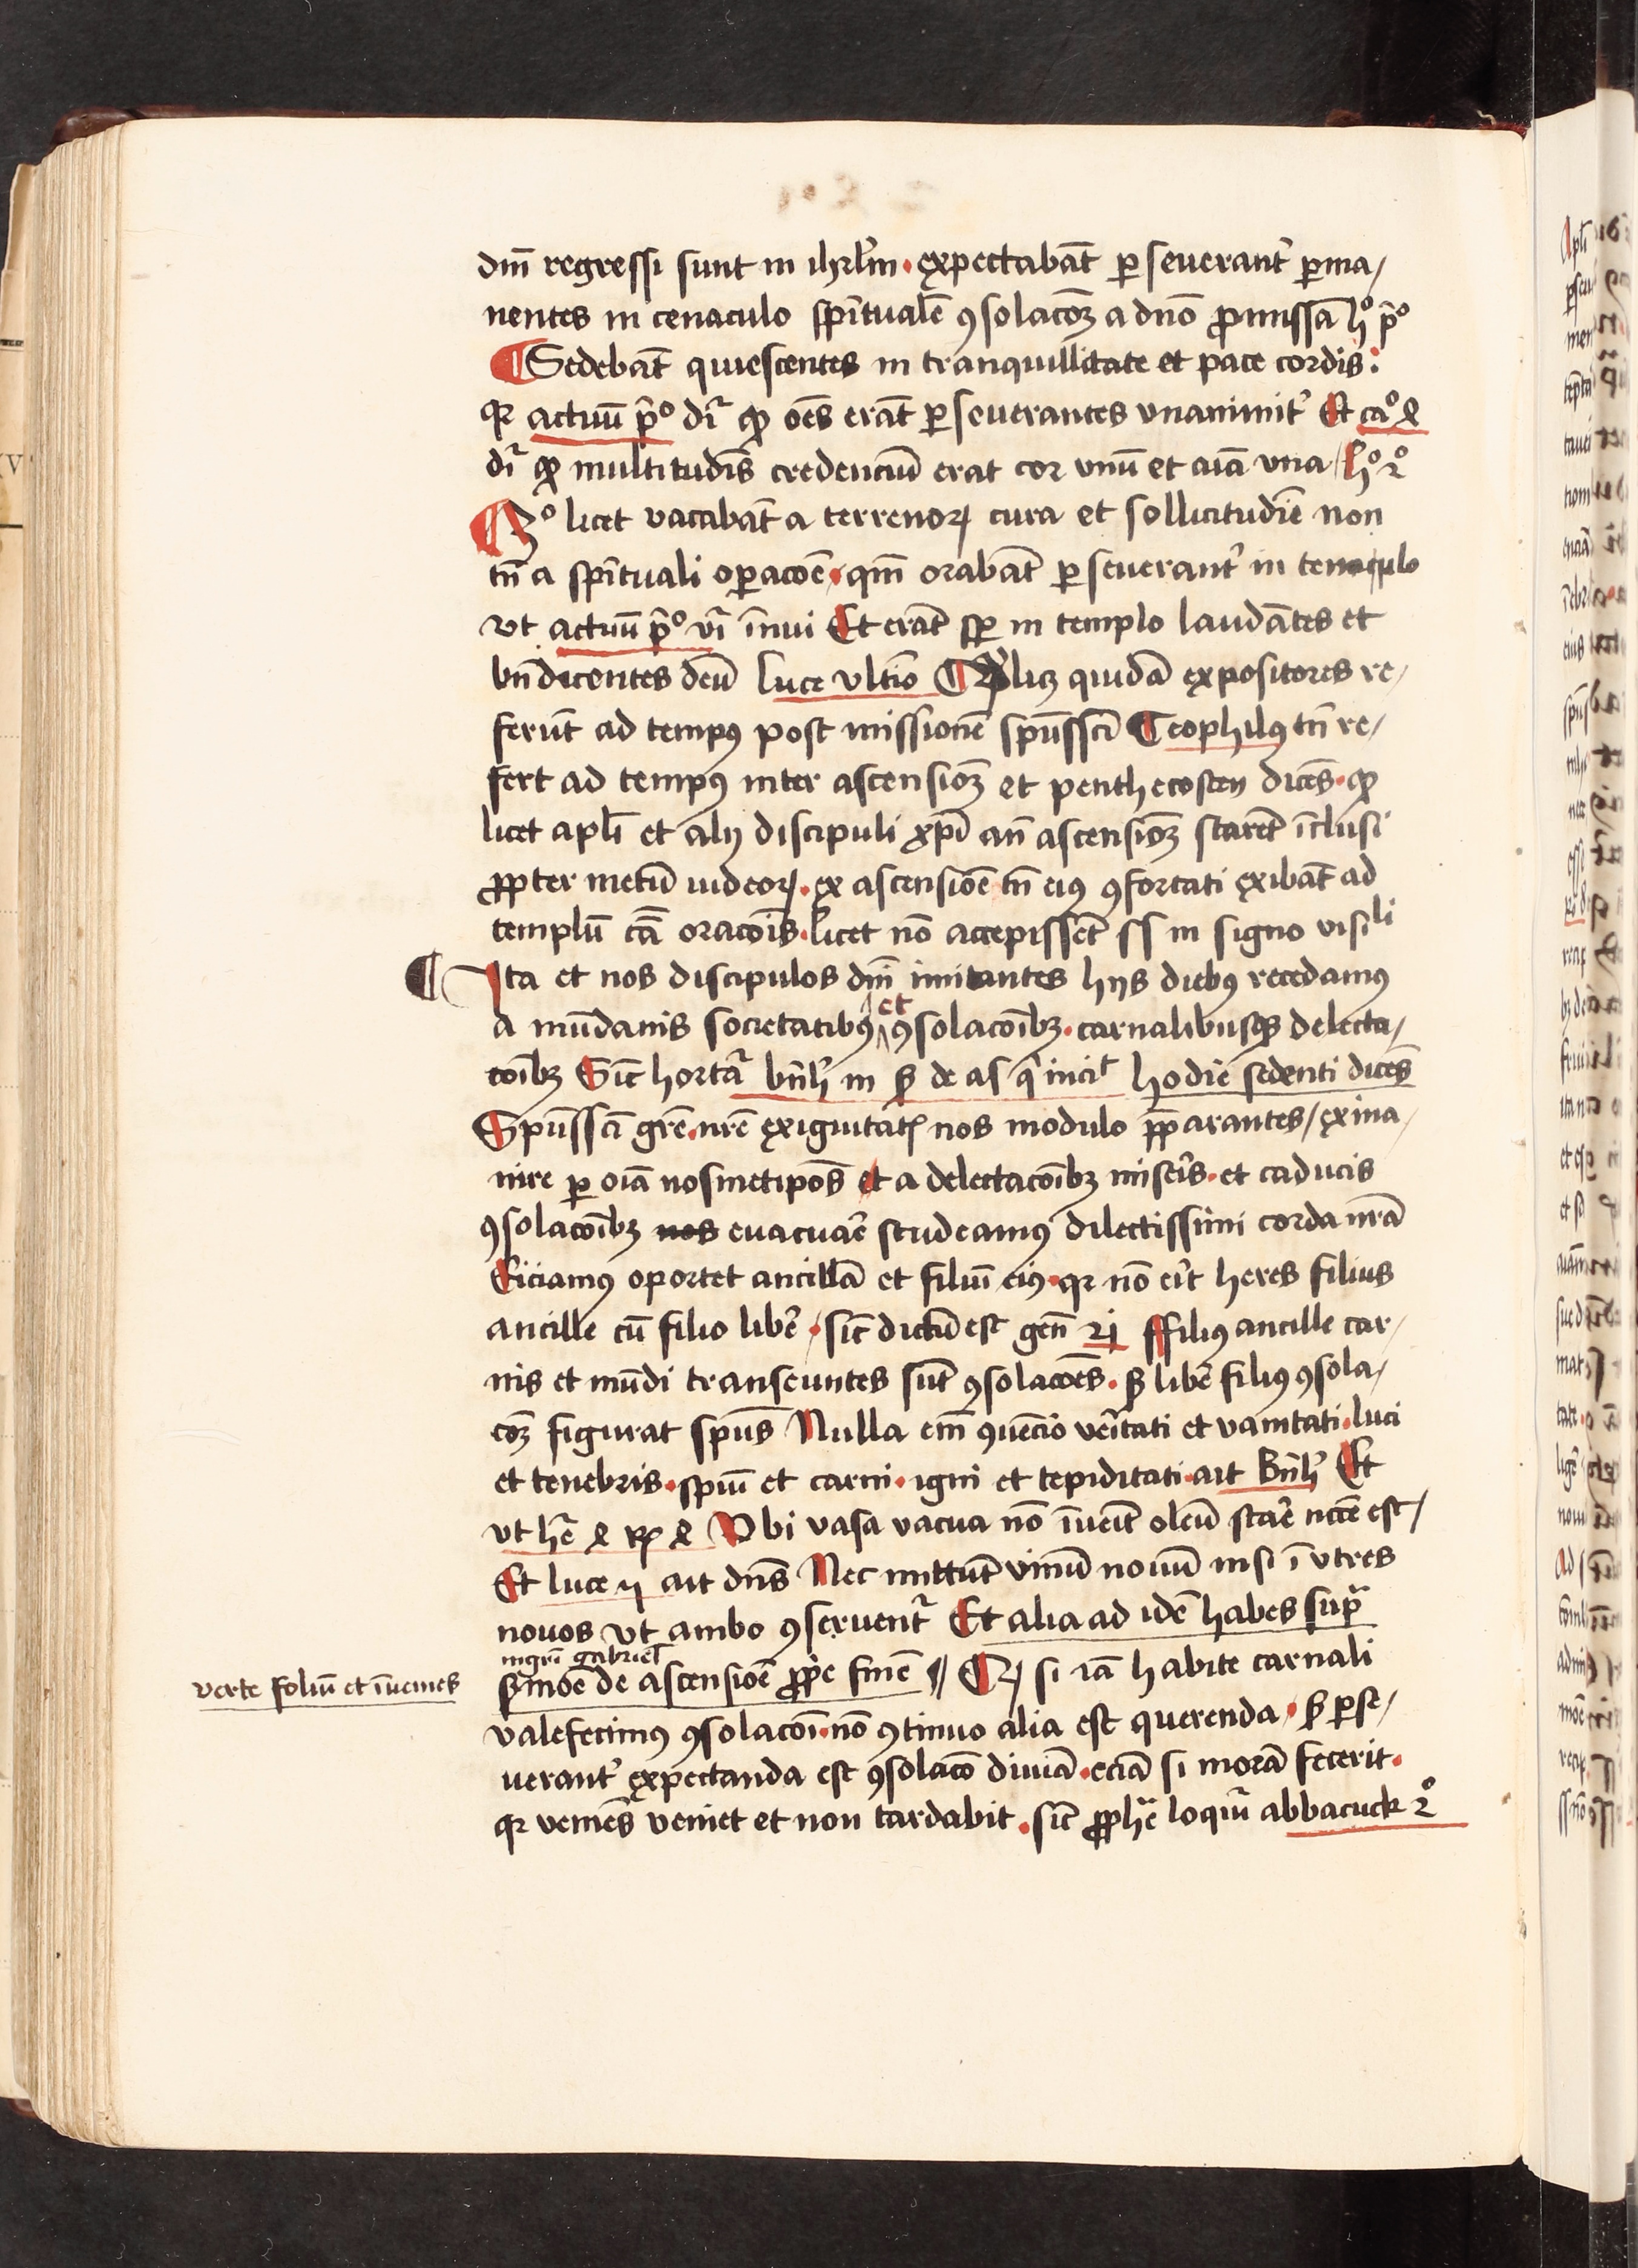 dm̄ regressi sunt in ihrl̄m · expectabāt ꝑseuerant̉ ꝑma/
nentes in cenaculo spīritualē ꝯsolacōꝫ a dn̄o ꝓmissā h° p̄°
¶ Sedebāt quiescentes in tranquillitate et pace cordis :
qꝛ actuū p̄° dr̄ ꝙ oēs erāt ꝑseuerantes vnanimit̉ Et ca° 4
dr̄ ꝙ multitudīs credenciū erat cor vnū et aīa vna / h° 2°
¶ 3° licet vacabāt a terrenoꝝ cura et sollicitudīe non
tn̄ a spīrituali oꝑacōe · qm̄ orabāt ꝑseuerant̉ in cenaculo
vt actuū p̄° vr̄ īnui Et erāt sꝑ in templo laudātes et
bn̄dicentes deū luce vltīo ¶ quidā expositores re/
ferūt ad tempꝰ post missionē spūssci Teophilꝰ tn̄ re/
fert ad tempꝰ inter ascensiōꝫ et penthecosten dicēs · ꝙ
licet apl̄i et alij discipuli xp̄i an̄ ascensiōꝫ starēt īclusi
ꝓpter metū iudeoꝝ · ex ascensiōe tn̄ eiꝰ ꝯfortati exibāt ad
templū cā oracōis · licet nō accepissēt ss in signo visili
¶ Ita et nos discipulos dn̄i imitantes hijs diebꝰ recedamꝰ
a mūdanis societatibꝰ et ꝯsolacōibꝫ · carnalibusqꝫ delecta/
cōibꝫ Sic hortat̉ bn̄h̉ in ẜ de as q̄ incit̉ hodie sedenti dicēs
Spūssci gr̄e · nr̄e exiguitatꝭ nos modulo p̄parantes / exina/
nire ꝑ oīa nosmetip̄os et a delectacōibꝫ miseris · et caducis
ꝯsolacōibꝫ nos euacuar̄e studeamꝰ dilectissimi corda nr̄a
Eiciamꝰ oportet ancillā et filiū eiꝰ · qꝛ nō er̄it heres filius
ancille cū filio liber̄e · sic̄ dictū est gen̄ 21 ffiliꝰ ancille car/
nis et mūdi transeuntes sūt ꝯsolacōes · ẜ liber̄e filiꝰ ꝯsola/
cōꝫ figurat spūs Nulla em̄ ꝯuēcio ver̄itati et vanitati · luci
et tenebris · spiū et carni · igni et tepiditati · ait bn̄h̉ Et
vt hr̄ 4 Rꝝ 4 Vbi vasa vacua nō īueīt oleū star̄e ncc̄e est /
Et luce ait dn̄s Nec mittūt vinū nouū nisi ī vtres
nouos vt ambo ꝯseruent̉ Et alia ad idē habes supᷓ
mgr̄i gabriel
ẜmōe de ascensiōe ꝓpe finē // ¶ si iā habite carnali
verte foliū et īuenies
valefecimꝰ ꝯsolacōi · nō ꝯtinuo alia est querenda · ẜ ꝑse/
uerant̉ expectanda est ꝯsolacō diuiā · eciā si morā fecerit ·
qꝛ veniēs veniet et non tardabit · sic̄ ꝓphē loquit̉ abbacuck 2°